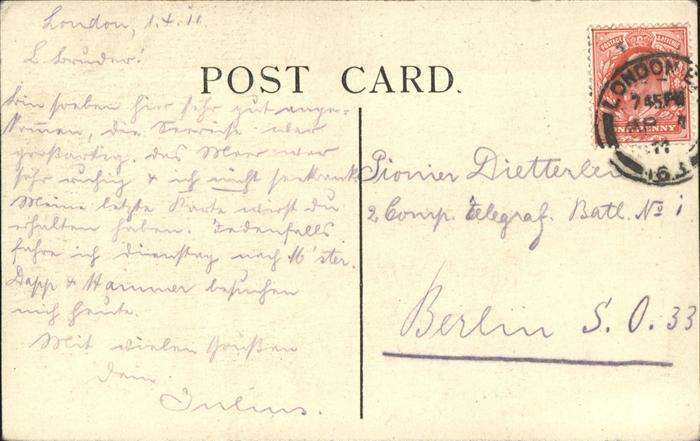 London, 1.4.11
L. Bruder!
POST CARD.
Bin soeben hier sehr gut ange-
kommen, die Seereise war
großartig, das Meer war
sehr ruhig & ich nicht seekrank.
Meine letzte Karte wirst du
erhalten haben. Jedenfalls
fahre ich Dienstag nach M'ster.
Dapp & Hammer besuchen
mich heute.
Mit vielen Grüßen
dein
Julius.
POSTAGE
LONDON
7 45 PM
AP
11
ONE PENNY
Pionier Dietterle
2 Comp. Telegraf. Batl. No 1
Berlin S. O. 33